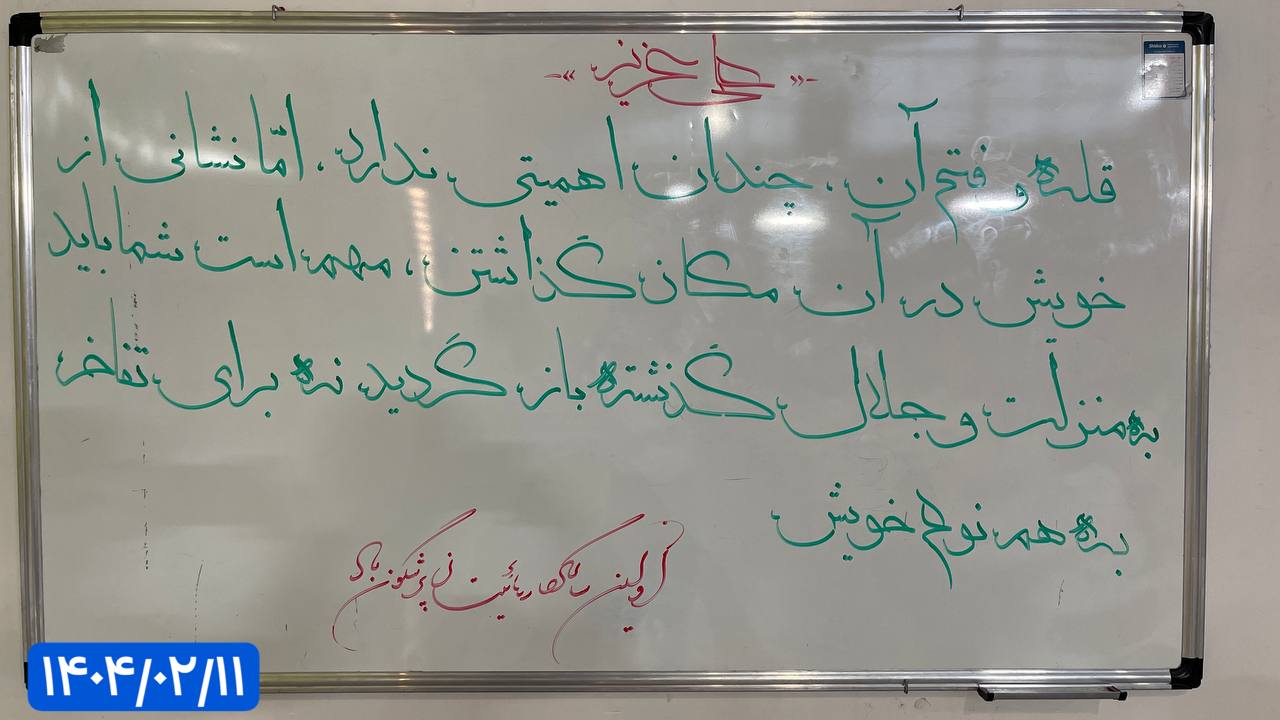 «علی عزیز»
قله و فتح آن، چندان اهمیتی ندارد. امّا نشانی از
خویش در آن مکان گذاشتن، مهم است شما باید
به منزلت و جلال گذشته باز گردید نه برای تفاخر
به هم نوع خویش
اولین پرشگون باد
۱۴۰۴/۰۲/۱۱